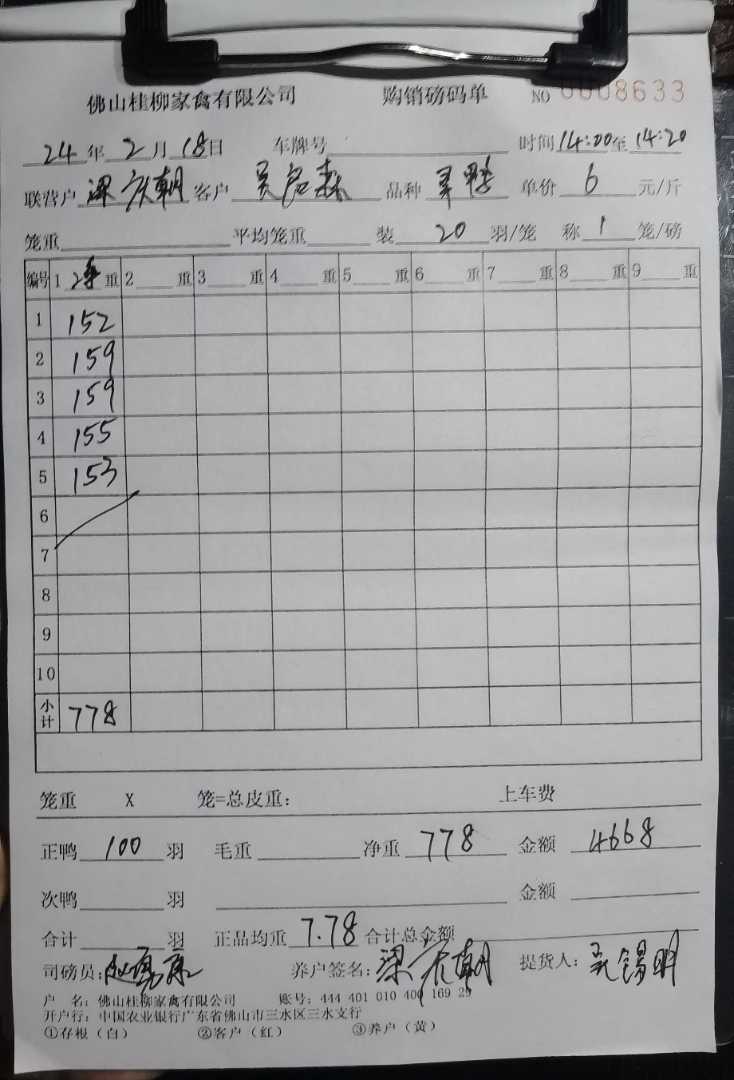 佛山桂柳家禽有限公司 购销磅码单 NO 0008633
24年2月18日 车牌号 时间14:00至14:20
联营户 梁庆朝 客户 品种 单价 6 元/斤
笼重 平均笼重 装 20 羽/笼 称 1 笼/磅
编号 1 重 2 重 3 重 4 重 5 重 6 重 7 重 8 重 9 重
1 152
2 159
3 159
4 155
5 153
6
7
8
9
10
小计 778
笼重 X 笼=总皮重: 上车费
正鸭 100 羽 毛重 净重 778 金额 4668
次鸭 羽 金额
合计 羽 正品均重 7.78 合计总金额
司磅员: 养户签名: 梁庆朝 提货人: 吴锡明
户 名: 佛山桂柳家禽有限公司 账号: 444 401 010 400 169 29
开户行: 中国农业银行广东省佛山市三水区三水支行
①存根(白) ②客户(红) ③养户(黄)